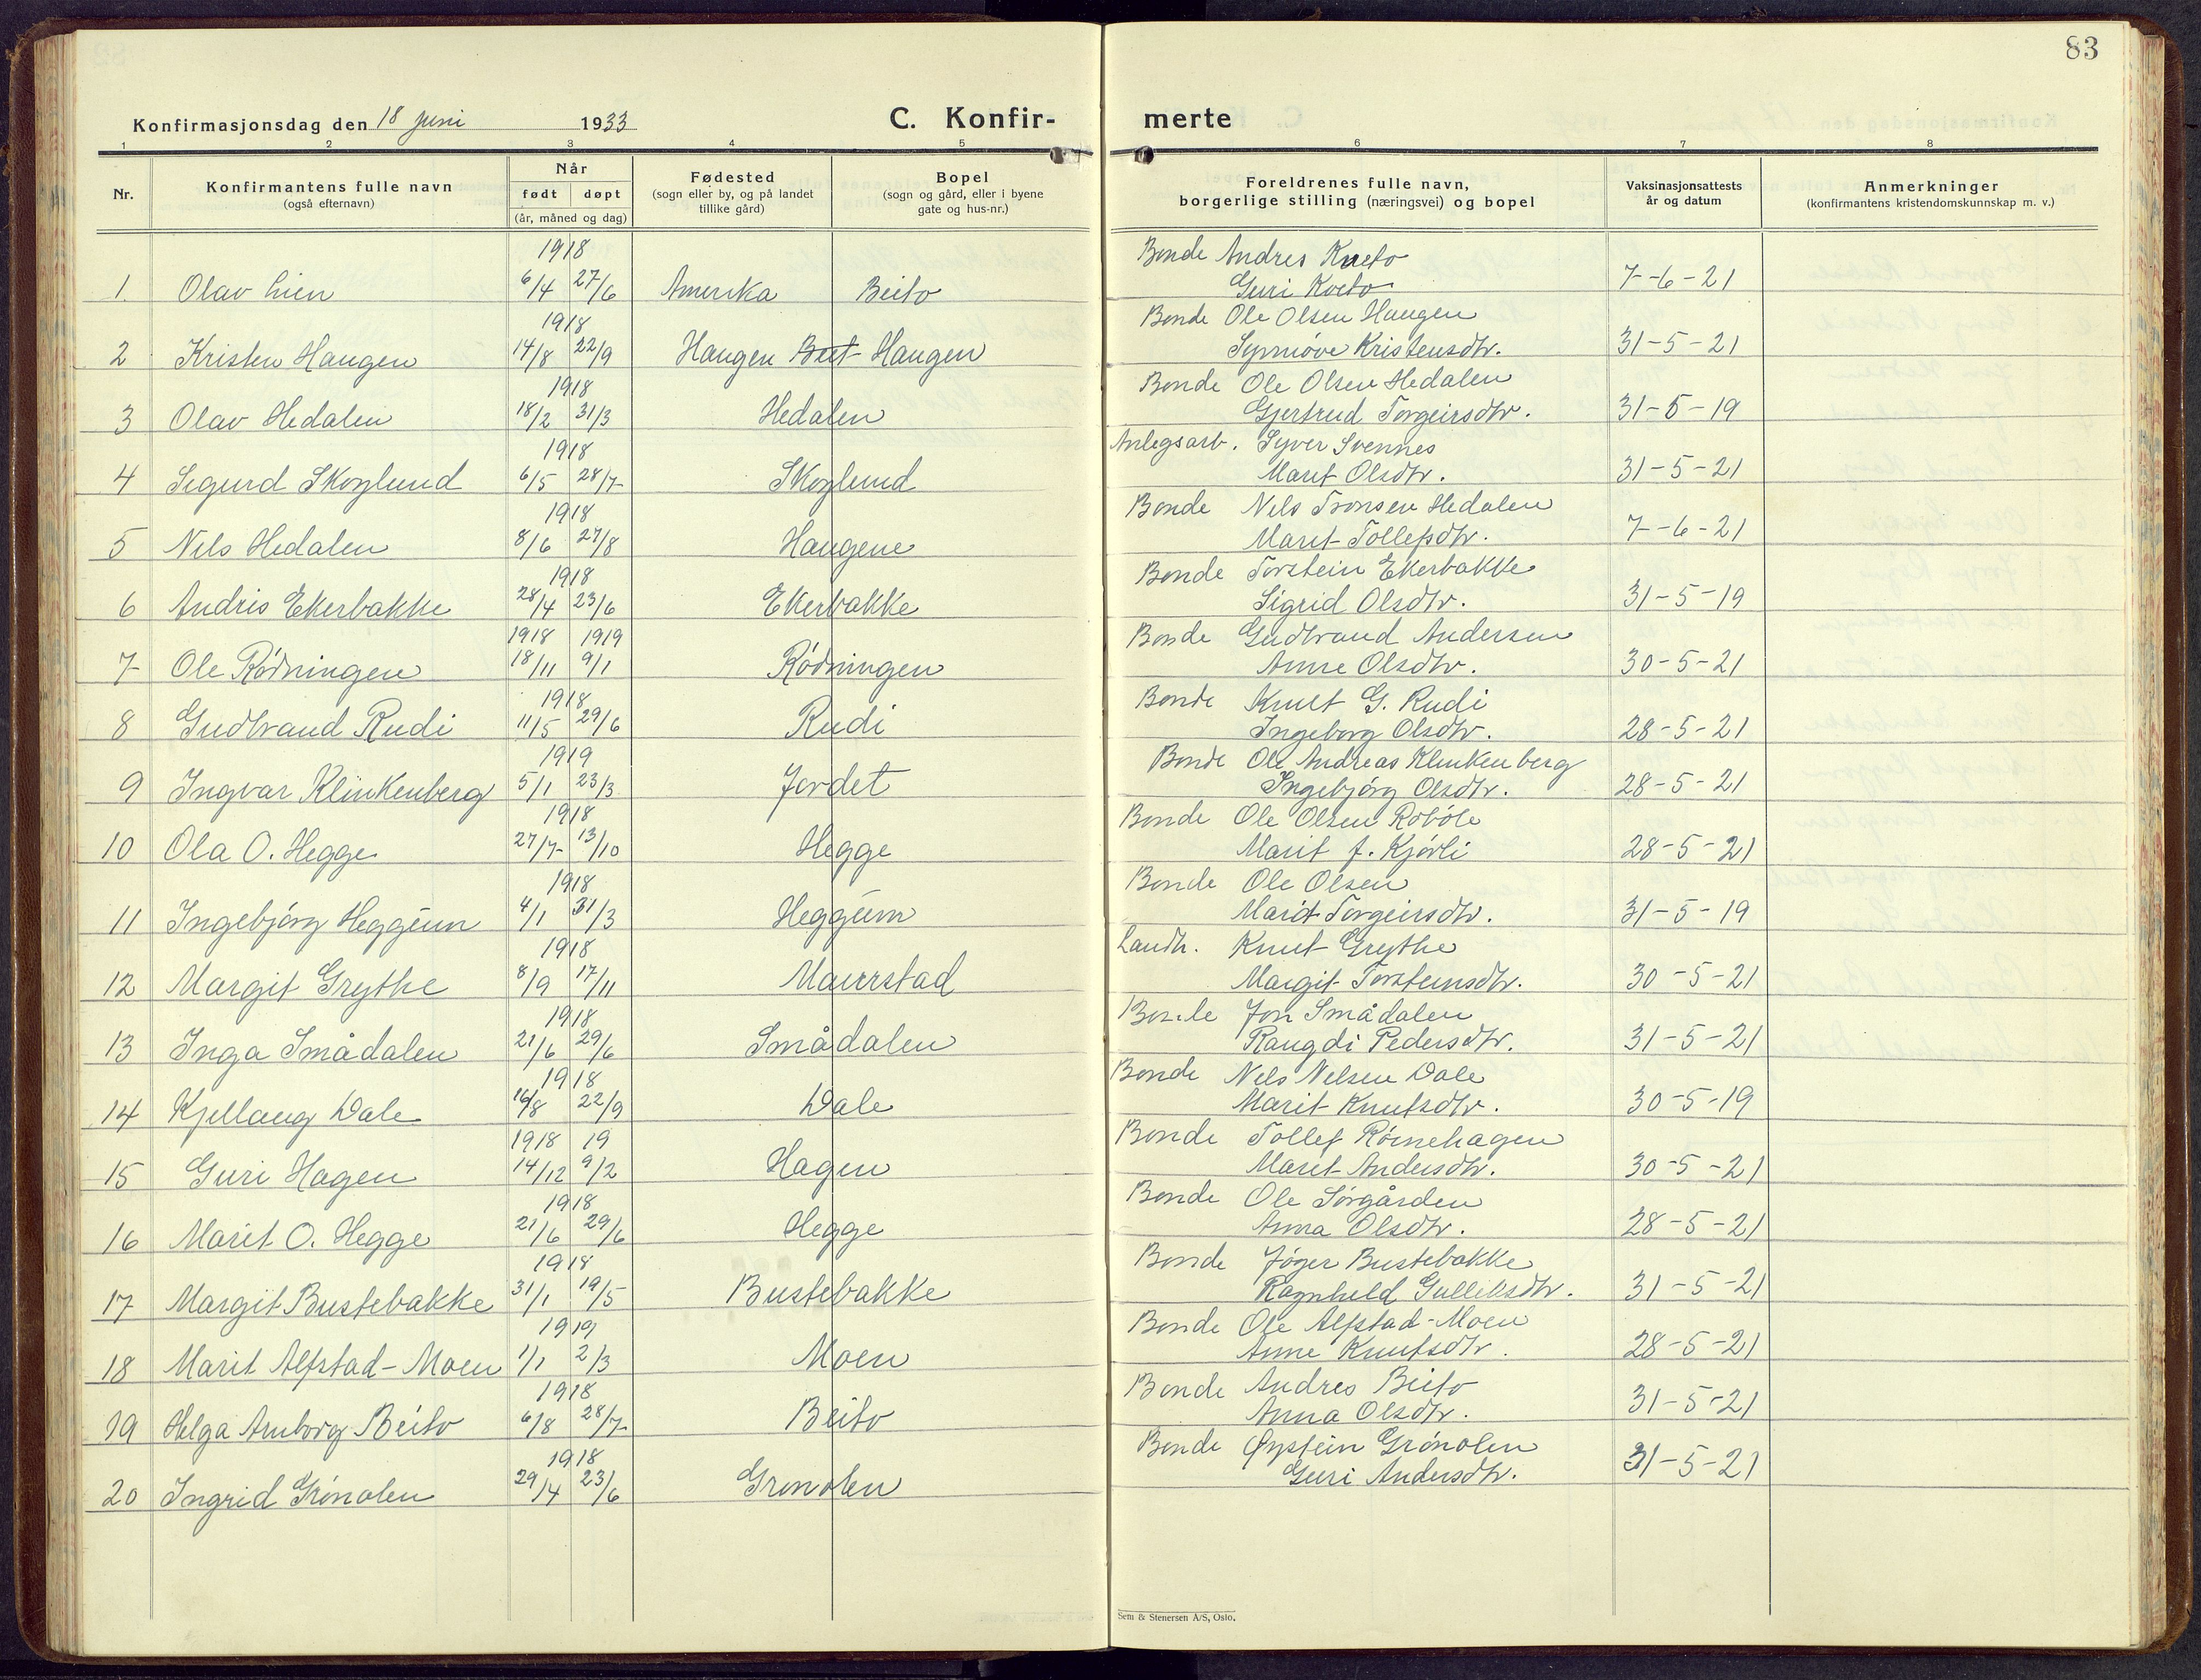 83
Konfirmasjonsdag den 18 juni 1933 C. Konfir- merte
1 2 3 4 5 6 7 8
Nr. Konfirmantens fulle navn (også efternavn) Når født døpt (år, måned og dag) Fødested (sogn eller by, og på landet tillike gård) Bopel (sogn og gård, eller i byene gate og hus-nr.) Foreldrenes fulle navn, borgerlige stilling (næringsvei) og bopel Vaksinasjonsattests år og datum Anmerkninger (konfirmantens kristendomskunnskap m. v.)
1918 Bonde Andres
1. Olav Lien 6/4 27/6 Amerika Beito Guri 7-6-21
1918 Bonde Ole Olsen Haugen
2 Kristen Haugen 14/8 22/9 Haugen Beit Haugen Synnøve Kristensdtr. 31-5-21
1918 Bonde Ole Olsen Hedalen
3 Olav Hedalen 18/2 31/3 Hedalen Gjertrud Torgeirsdtr. 31-5-19
1918 Anlegsarb. Syver Svennes
4 Sigurd Skoglund 6/5 28/7 Skoglund Marit Olsdtr. 31-5-21
1918 Bonde Nils Tronsen Hedalen
5 Nils Hedalen 8/6 27/8 Haugene Marit Tollefsdtr. 7-6-21
1918 Bonde Torstein Ekerbakke
6 Andris Ekerbakke 28/4 23/6 Ekerbakke Sigrid Olsdtr. 31-5-19
1918 1919 Bonde Gudbrand Andersen
7 Ole Rødningen 18/11 9/1 Rødningen Anne Olsdtr. 30-5-21
1918 Bonde Knut G. Rudi
8 Gudbrand Rudi 11/5 29/6 Rudi Ingeborg Olsdtr. 28-5-21
1919 Bonde Ole Andreas Klinkenberg
9 Ingvar Klinkenberg 5/1 23/3 Jordet Ingebjørg Olsdtr. 28-5-21
1918 Bonde Ole Olsen Robøle
10 Ola O. Hegge 27/7 13/10 Hegge Marit f. Kjørli 28-5-21
1918 Bonde Ole Olsen
11 Ingebjørg Heggeim 4/1 31/3 Heggeim Marit Torgeirsdtr. 31-5-19
1918 Landh. Knut Grythe
12 Margit Grythe 8/9 17/11 Maurstad Margit Torsteinsdtr. 30-5-21
1918 Bonde Jon Smådalen
13 Inga Smådalen 21/6 29/6 Smådalen Rangdi Pedersdtr. 31-5-21
1918 Bonde Nils Nilsen Dale
14 Kjellaug Dale 16/8 22/9 Dale Marit Knutsdtr. 30-5-19
1918 19 Bonde Tollef Rørnehagen
15 Guri Hagen 14/12 9/2 Hagen Marit Andersdtr. 30-5-21
1918 Bonde Ole Sørgården
16 Marit O. Hegge 21/6 29/6 Hegge Anna Olsdtr. 28-5-21
1918 Bonde Jøger Bustebakke
17 Margit Bustebakke 31/1 19/5 Bustebakke Ragnhild Gulliksdtr. 31-5-21
1919 Bonde Ole Alfstad-Moen
18 Marit Alfstad-Moen 1/1 2/3 Moen Anne Knutsdtr. 28-5-21
1918 Bonde Andres Beito
19 Helga Arnborg Beito 6/8 28/7 Beito Anna Olsdtr. 31-5-21
1918 Bonde Øystein Grønolen
20 Ingrid Grønolen 29/4 23/6 Grønolen Guri Andersdtr. 31-5-21
Sem & Stenersen A/S, Oslo.